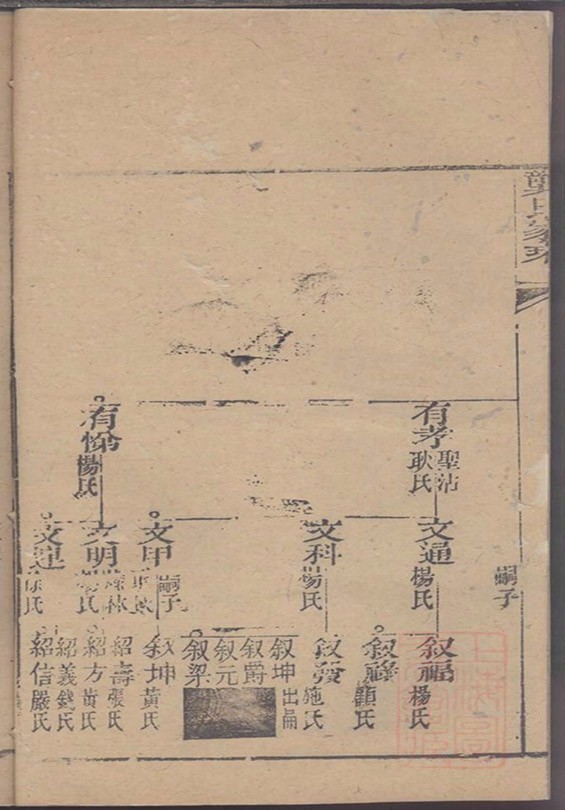 龔氏家
嗣子
有孝
聖沾
耿氏
有恰
楊氏
文通
楊氏
文科
楊氏
文甲
嗣子
文明
文運
叙福
楊氏
叙祿
顧氏
叙發
施氏
叙坤
出嗣
叙爵
叙元
叙梁
叙坤
黃氏
紹壽
張氏
紹方
黃氏
紹義
錢氏
紹信
嚴氏